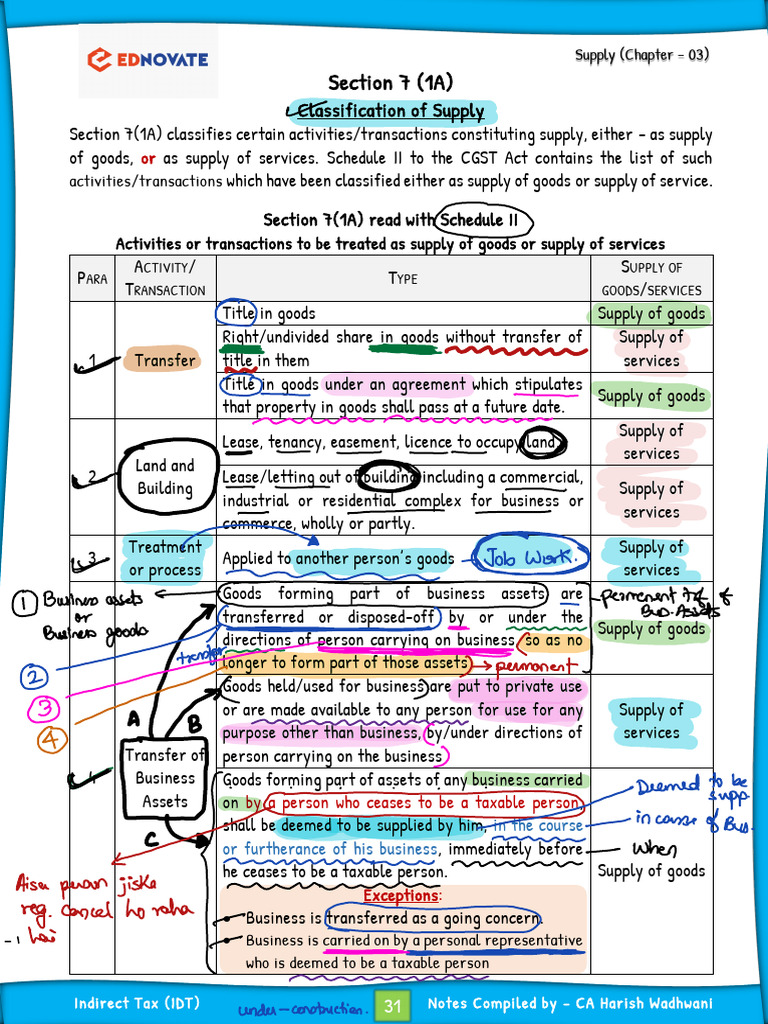 EDNOVATE
Supply (Chapter – 03)
Section 7 (1A)
Classification of Supply
Section 7(1A) classifies certain activities/transactions constituting supply, either – as supply
of goods, or as supply of services. Schedule II to the CGST Act contains the list of such
activities/transactions which have been classified either as supply of goods or supply of service.
Section 7(1A) read with Schedule II
Activities or transactions to be treated as supply of goods or supply of services
PARA
ACTIVITY/
TRANSACTION
TYPE
SUPPLY OF
GOODS/SERVICES
1
Transfer
Title in goods
Supply of goods
Right/undivided share in goods without transfer of
title in them
Supply of
services
Title in goods under an agreement which stipulates
that property in goods shall pass at a future date.
Supply of goods
2
Land and
Building
Lease, tenancy, easement, licence to occupy land
Supply of
services
Lease/letting out of building including a commercial,
industrial or residential complex for business or
commerce, wholly or partly.
Supply of
services
3
Treatment
or process
Applied to another person's goods
Job Work.
Supply of
services
1 Business assets
or
Business goods
Goods forming part of business assets are
transferred or disposed-off by or under the
directions of person carrying on business so as no
longer to form part of those assets
→ permanent
permanent t/f of
Bus. Assets
Supply of goods
transfer
2
3
4
A
B
Goods held/used for business are put to private use
or are made available to any person for use for any
purpose other than business, by/under directions of
person carrying on the business
Supply of
services
4
Transfer of
Business
Assets
C
Goods forming part of assets of any business carried
on by a person who ceases to be a taxable person,
shall be deemed to be supplied by him, in the course
or furtherance of his business, immediately before
he ceases to be a taxable person.
Deemed to be
supp.
in course of Bus.
when
Supply of goods
Aisa person jiska
reg. cancel ho raha
hai
Exceptions:
Business is transferred as a going concern.
Business is carried on by a personal representative
who is deemed to be a taxable person
Indirect Tax (IDT)
under – construction.
31
Notes Compiled by – CA Harish Wadhwani